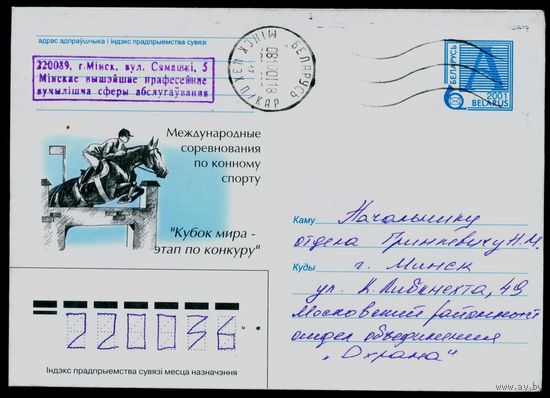 адрас адпраўшчыка і індэкс прадпрыемства сувязі
220089, г.Мінск. вул. Сямашкі, 5
Мінскае вышэйшае прафесейнае
вучылішча сферы абслугоўвання
БЕЛАРУСЬ
МІНСК
П/КАР
БЕЛАРУСЬ
А
2001
BELARUS
Международные
соревнования
по конному
спорту
"Кубок мира -
этап по конкуру"
Каму Начальнику
отдела Гринкевичу Н.М.
Куды г. Минск
ул. К.Либкнехта, 49
Московский районный
отдел объединения
"Охрана"
220036
Індэкс прадпрыемства сувязі месца назначэння
www.ay.by